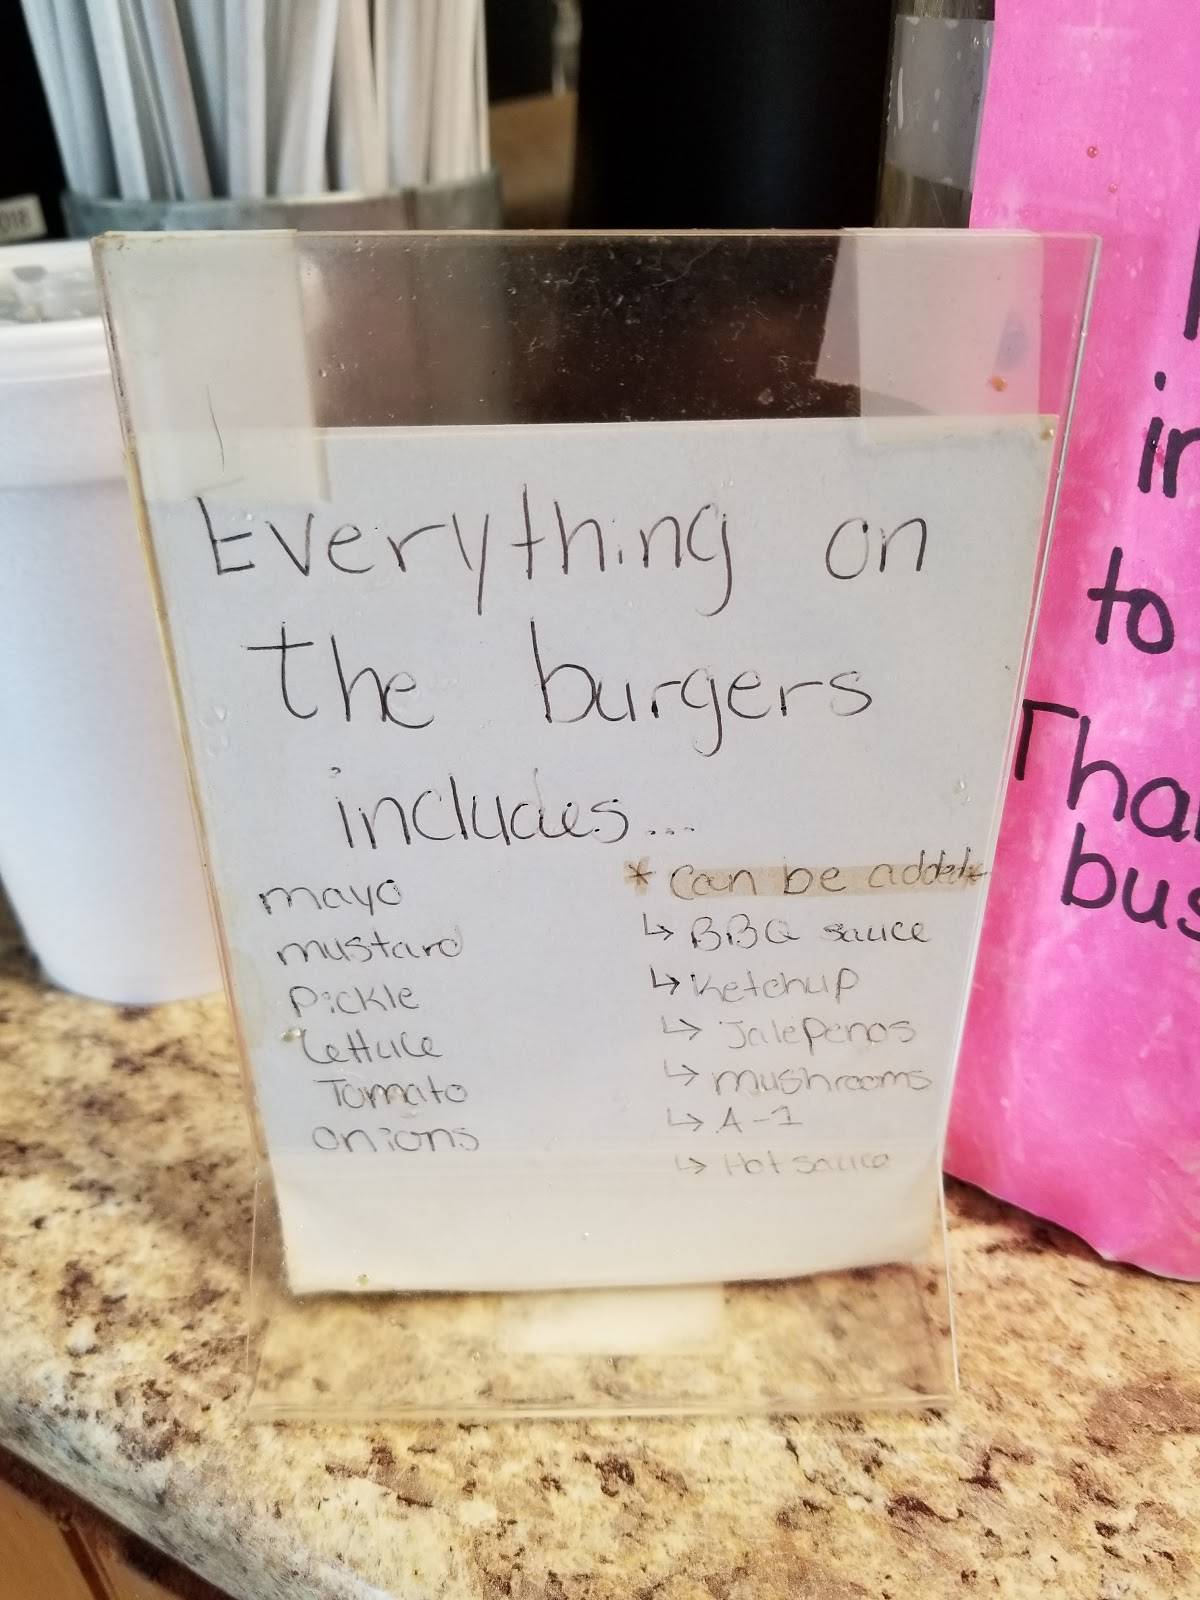 Everything on
the burgers
includes...
mayo
mustard
Pickle
Lettuce
Tomato
onions
* Can be added *
↳ BBQ sauce
↳ Ketchup
↳ Jalepenos
↳ mushrooms
↳ A-1
↳ Hot sauce
to